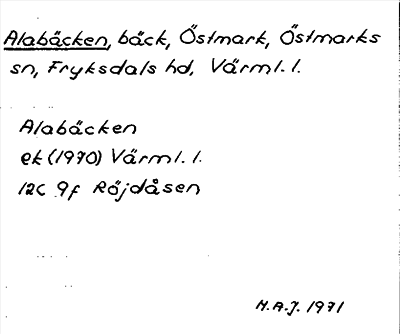 Alabäcken, bäck, Östmark, Östmarks
sn, Fryksdals hd, Värml. l.
Alabäcken
ek (1970) Värml. l.
12C 9f Röjdåsen
H.A.J. 1971